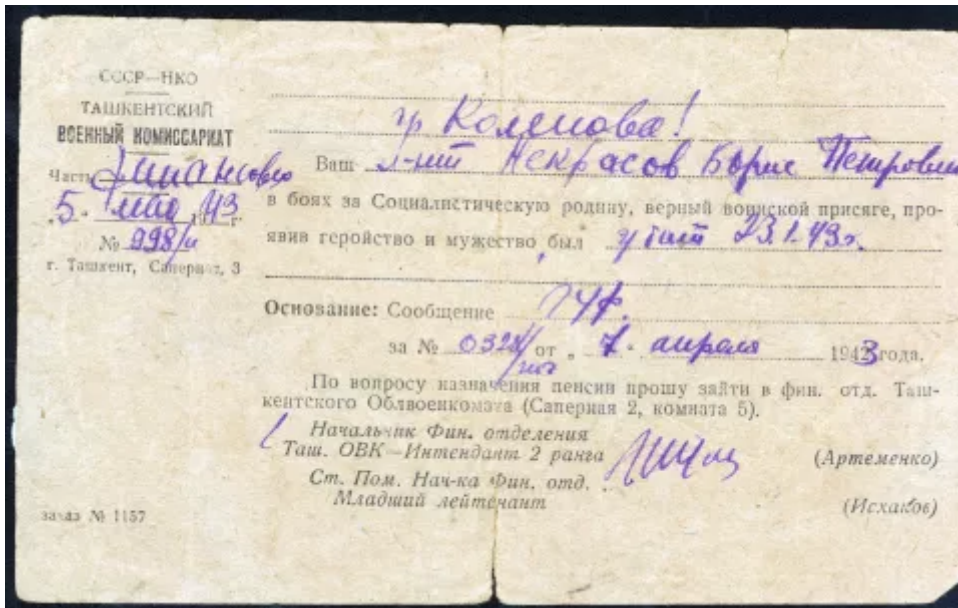 СССР—НКО
ТАШКЕНТСКИЙ
ВОЕННЫЙ КОМИССАРИАТ
Часть Финансовая
„5“ мая 1943 г.
№ 998/и
г. Ташкент, Саперная, 3
гр
Ваш л-нт Некрасов Борис Петрович
в боях за Социалистическую родину, верный воинской присяге, про-
явив геройство и мужество, был убит 23.1.43г.
Основание: Сообщение
за № 0328/ от „7“ апреля 1943 года.
По вопросу назначения пенсии прошу зайти в фин. отд. Таш-
кентского Облвоенкомата (Саперная 2, комната 5).
Начальник Фин. отделения
Таш. ОВК—Интендант 2 ранга (Артеменко)
Ст. Пом. Нач-ка Фин. отд.
Младший лейтенант (Исхаков)
заказ № 1157